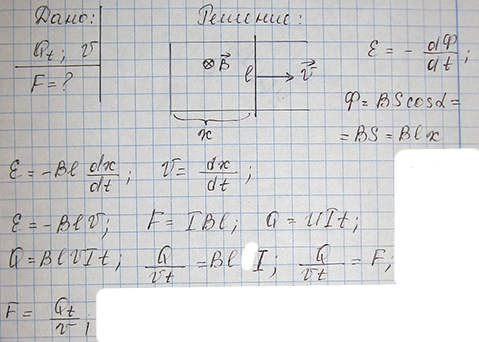 Дано: Решение:
Q_t; v
F = ?
⊗ B⃗ l v⃗
x
ℰ = - dФ/dt;
Ф = BScosα =
= BS = Blx
ℰ = -Bl dx/dt; v = dx/dt;
ℰ = -Blv; F = IBl; Q = UIt;
Q = BlvIt; Q/vt = Bl I; Q/vt = F;
F = Q_t/v;